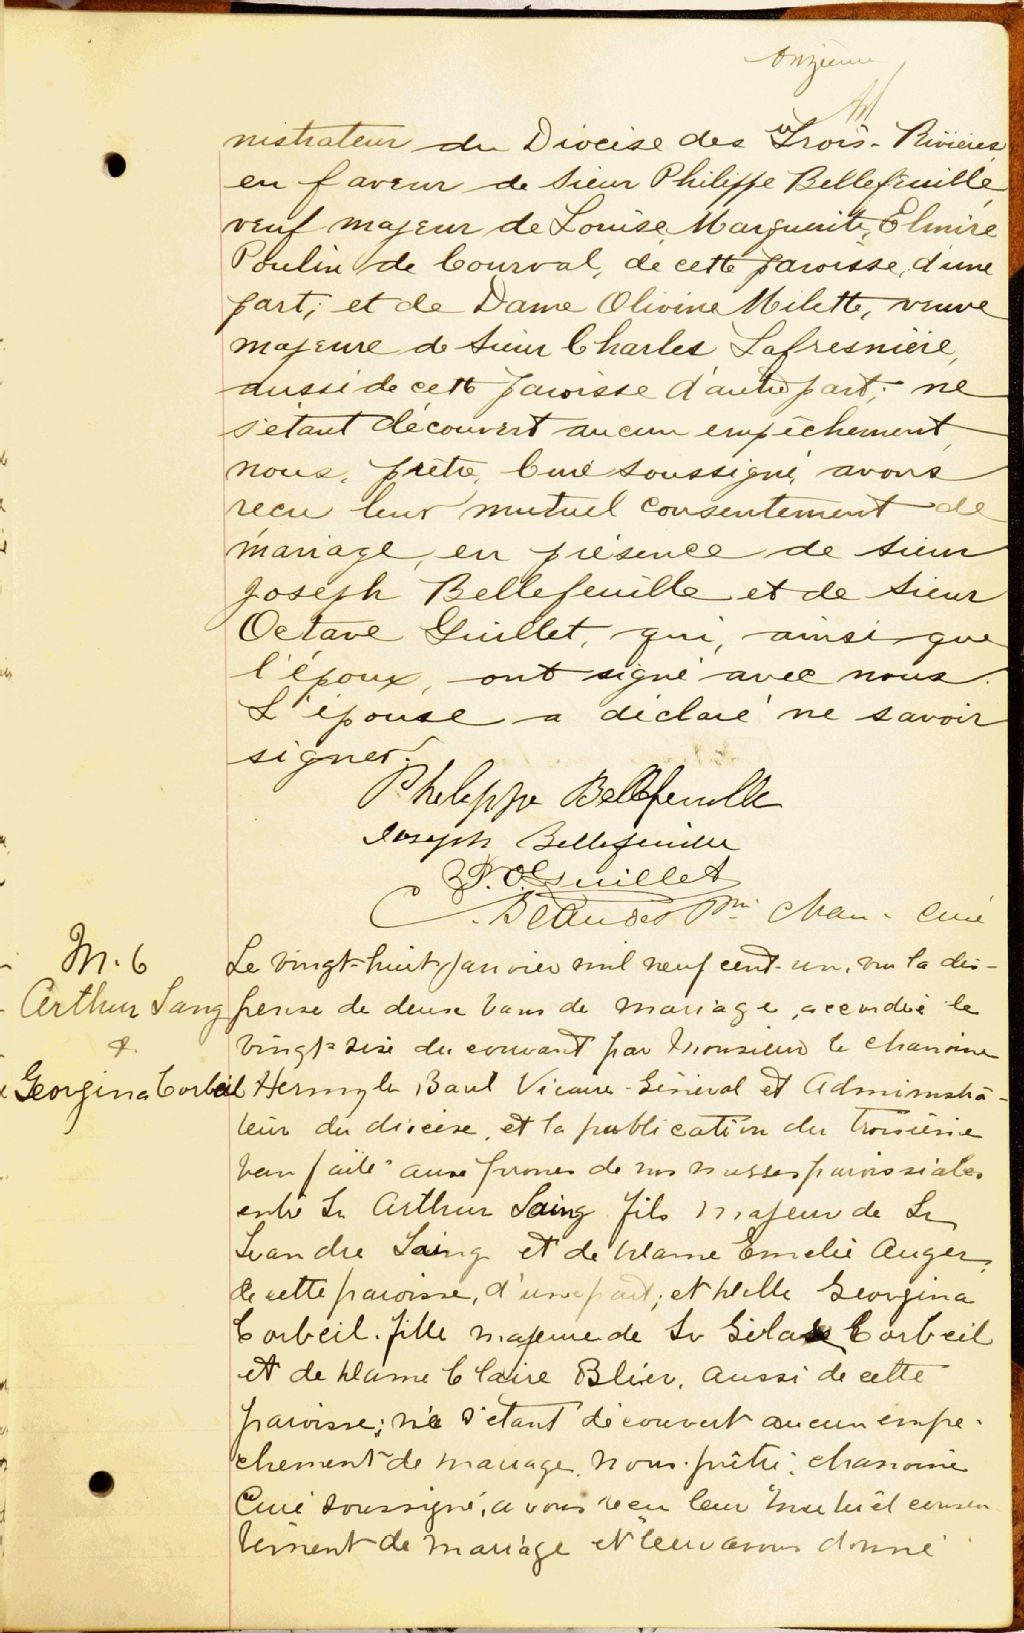 onzième
nistrateur du Diocèse des Trois-Rivières,
en faveur de Sieur Philippe Bellefeuille
veuf majeur de Louise, Marguerite, Elmire
Poulin de Courval, de cette paroisse, d'une
part; et de Dame Olivine Milette, veuve
majeure de Sieur Charles Lafresnière,
aussi de cette paroisse d'autre part; ne
s'étant découvert aucun empêchement,
nous, prêtre, Curé soussigné, avons
reçu leur mutuel consentement de
mariage, en présence de Sieur
Joseph Bellefeuille et de Sieur
Octave Guillet, qui, ainsi que
l'époux, ont signé avec nous.
L'épouse a déclaré ne savoir
signer.
Philippe Bellefeuille
Joseph Bellefeuille
P. O. Guillet
Ptre chan. curé
M. 6
Arthur Sang
&
Georgina Corbeil
Le vingt-huit janvier mil neuf cent-un, vu la dis-
pense de deux bans de mariage, accordée le
vingt-six du courant par Monsieur le chanoine
Hermyle Baril Vicaire-Général et Administra-
teur du diocèse, et la publication du troisième
ban faite aux prones de nos messes paroissiales
entre Sr Arthur Saing fils majeur de Sr
Leandre Saing et de Dame Emelie Auger,
de cette paroisse, d'une part; et Delle Georgina
Corbeil, fille majeure de Sr Gélas Corbeil
et de Dame Claire Blier, aussi de cette
paroisse; ne s'étant découvert aucun empê-
chement de mariage, nous, prêtre, chanoine
Curé soussigné, avons reçu leur mutuel consen
tement de mariage et leur avons donné